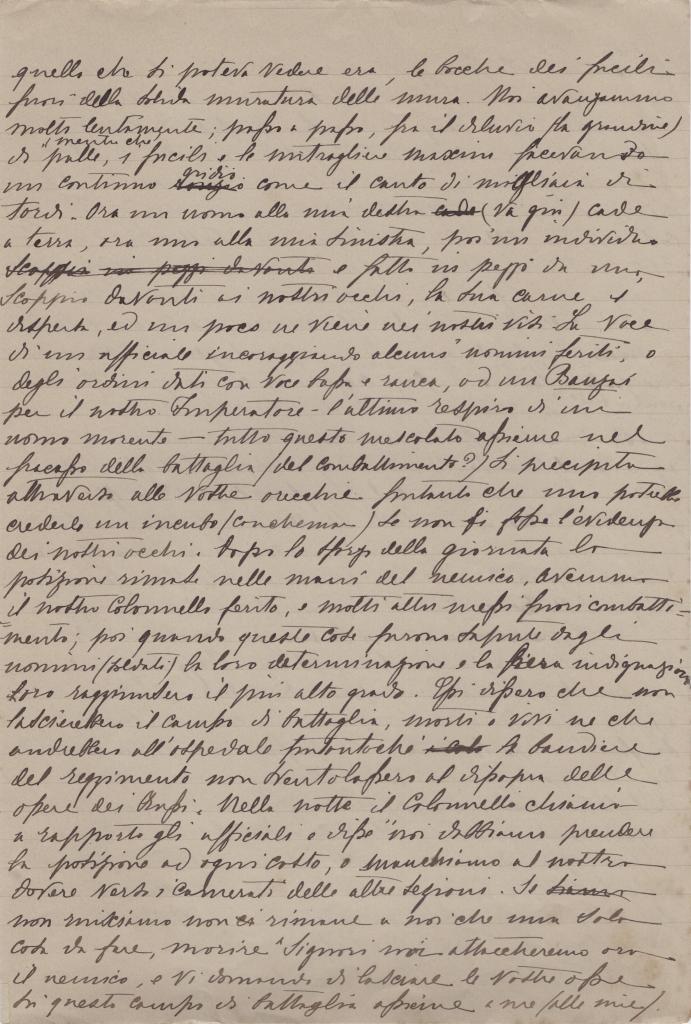 quello che si poteva vedere era, le bocche dei fucili
fuori della solida muratura delle mura. Noi avanzammo
molto lentamente; passo a passo, fra il diluvio (la grandine)
di palle, "mentre che" i fucili e le mitragliere maxim facevano
un continuo gridio come il canto di migliaia di
tordi. Ora un uomo alla mia destra cade (va giù) cade
a terra, ora uno alla mia sinistra, poi un individuo
scoppia in pezzi davanti e fatto in pezzi da uno
scoppio davanti ai nostri occhi, la sua carne è
dispersa, ed un poco ne viene nei nostri visi. La voce
di un ufficiale incoraggiando alcuni uomini feriti, o
degli ordini dati con voce bassa e rauca, od un Banzai
per il nostro Imperatore - l'ultimo respiro di un
uomo morente — tutto questo mescolato assieme nel
fracasso della battaglia (del combattimento?) si precipita
attraverso alle nostre orecchie fintanto che uno potrebbe
crederlo un incubo (cauchemar) se non fosse l'evidenza
dei nostri occhi. Dopo lo sforzo della giornata la
posizione rimase nelle mani del nemico. Avemmo
il nostro Colonnello ferito, e molti altri messi fuori combatti=
=mento; poi quando queste cose furono sapute dagli
uomini (soldati) la loro determinazione e la fiera indignazione
loro raggiunsero il più alto grado. Essi dissero che non
lascierebbero il campo di battaglia, morti o vivi ne che
andrebbero all'ospedale fintantoché la bandiera
del reggimento non sventolasse al disopra delle
opere dei Russi. Nella notte il Colonnello chiamò
a rapporto gli ufficiali e disse "noi dobbiamo prendere
la posizione ad ogni costo, o manchiamo al nostro
dovere verso i camerati delle altre legioni. Se siamo
non riusciamo non ci rimane a noi che una sola
cosa da fare, morire "Signori noi attaccheremo ora
il nemico, e vi domando di lasciare le vostre ossa
su questo campo di battaglia assieme a me (alle mie).